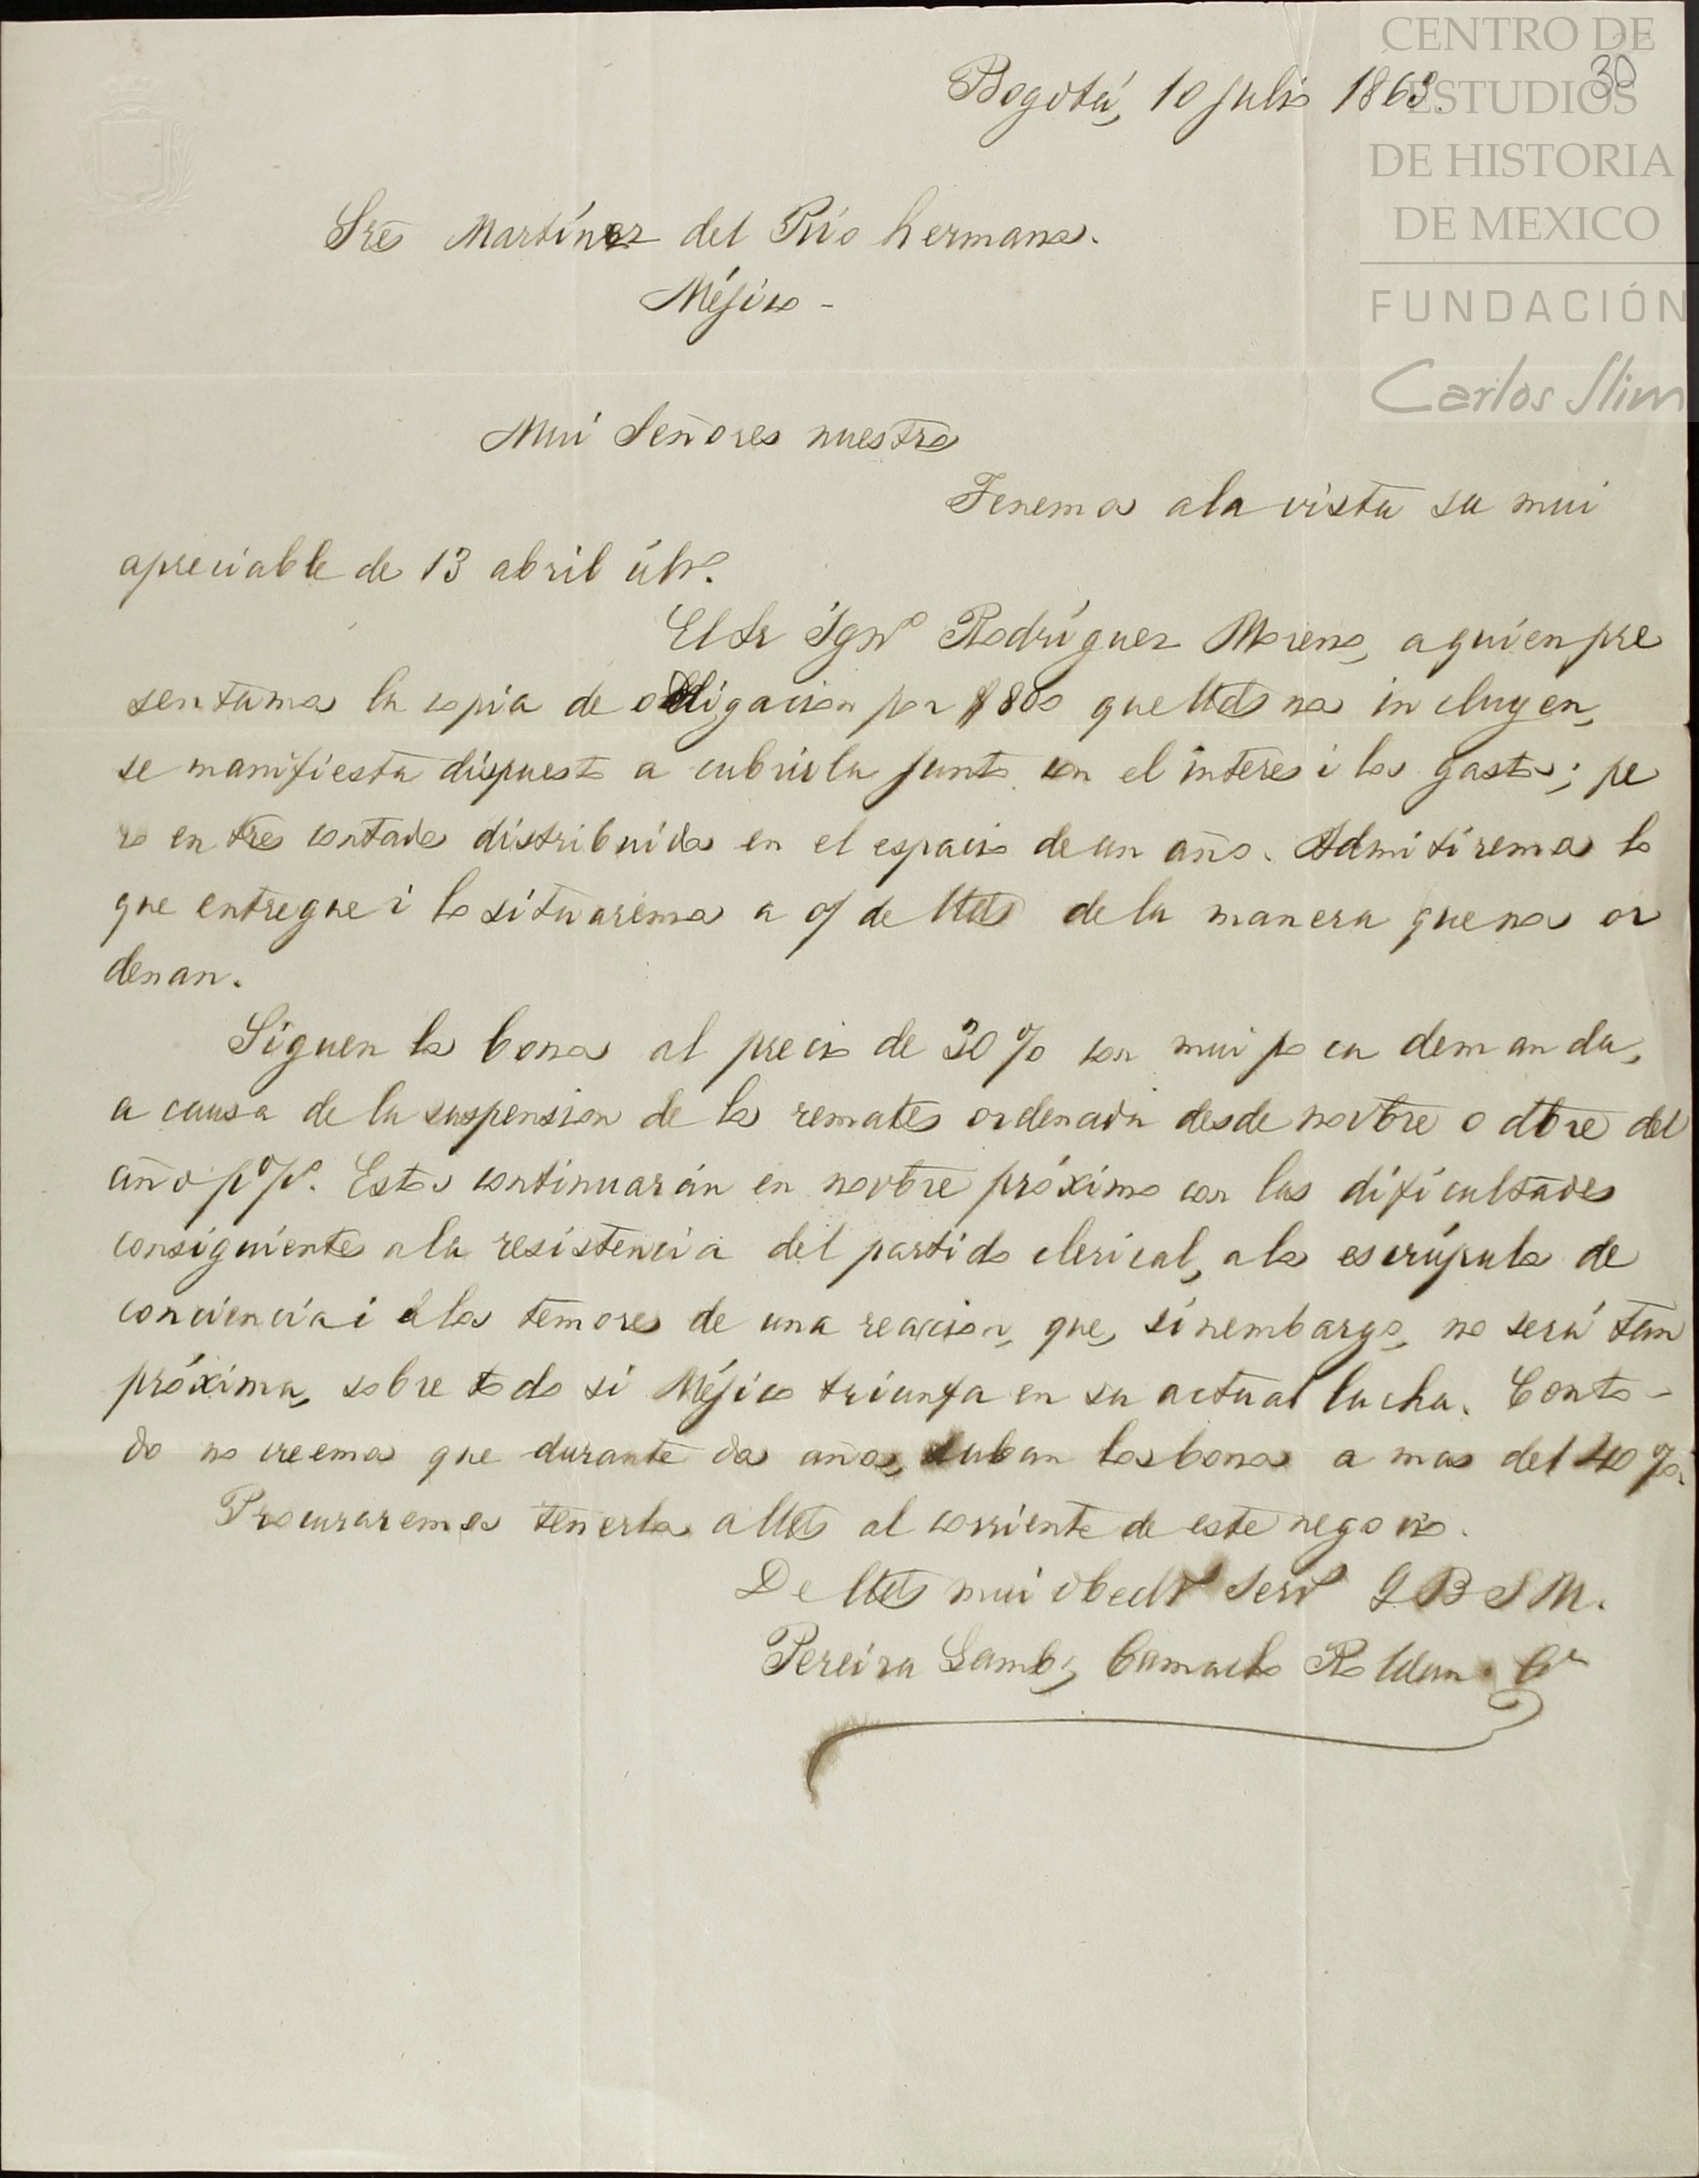 CENTRO DE
ESTUDIOS
DE HISTORIA
DE MEXICO
FUNDACIÓN
Carlos Slim
30
Bogotá, 10 julio 1863.
Sres Martínez del Rio hermanos.
Méjico -
Mui Señores nuestros
Tenemos a la vista su mui
apreciable de 13 abril últo.
El Sr Igno Rodríguez Moreno, a quien pre
sentamos la copia de obligacion por $800 que Uds nos incluyen,
se manifiesta dispuesto a cubrirla junto con el interes i los gastos; pe
ro en tres contados distribuidos en el espacio de un año. Admitiremos lo
que entregue i lo situaremos a o/ de Uds de la manera que nos or
denan.
Siguen los bonos al precio de 30% con mui poca demanda,
a causa de la suspension de los remates ordenada desde novbre o dbre del
año p°p°. Estos continuarán en novbre próximo con las dificultades
consiguientes a la resistencia del partido clerical, a los escrúpulos de
conciencia i a los temores de una reaccion, que, sinembargo, no será tan
próxima, sobre todo si Méjico triunfa en su actual lucha. Conto-
do no creemos que durante dos años, suban los bonos a mas del 40%.
Procuraremos tenerlos a Uds al corriente de este negocio.
De Uds mui obedtes servs Q B S M.
Pereira Gamba, Camacho Roldan & Ca